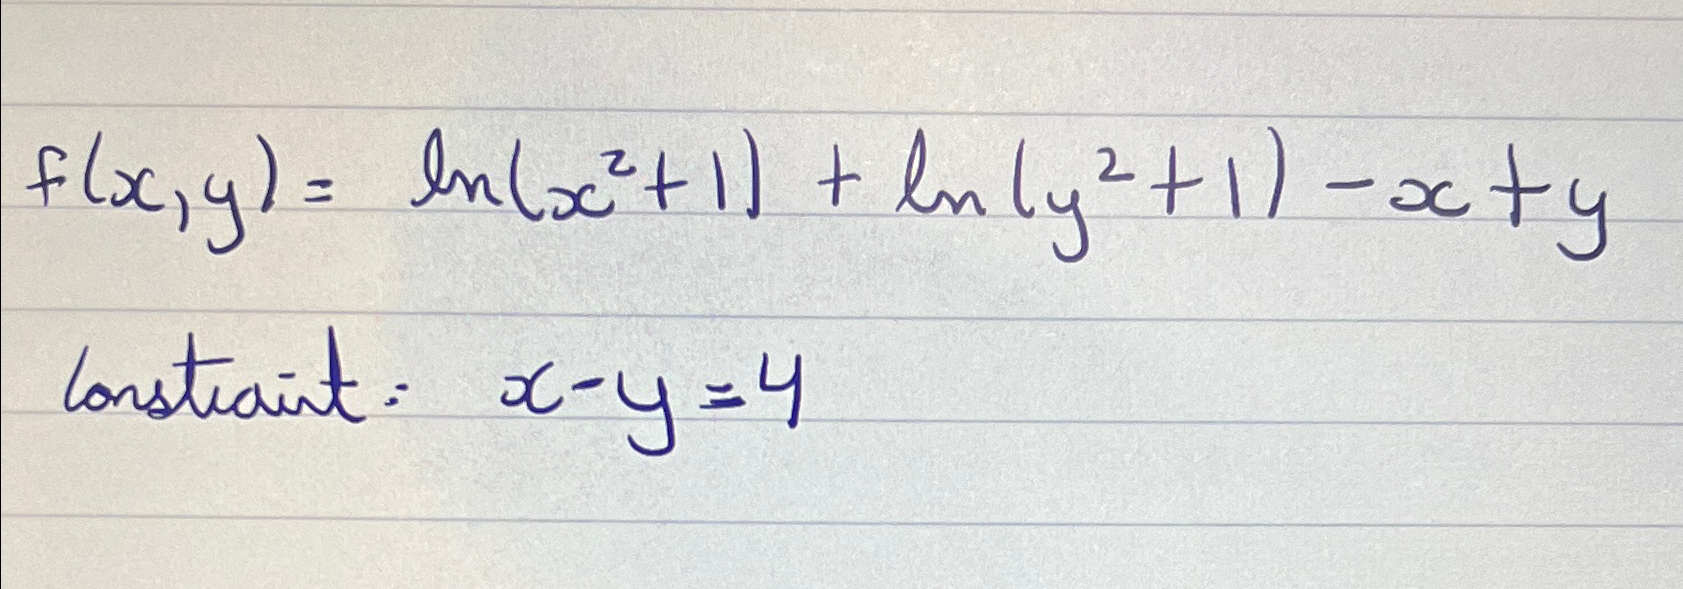 f(x,y) = ln(x²+1) + ln(y²+1) - x + y
Constraint: x-y=4